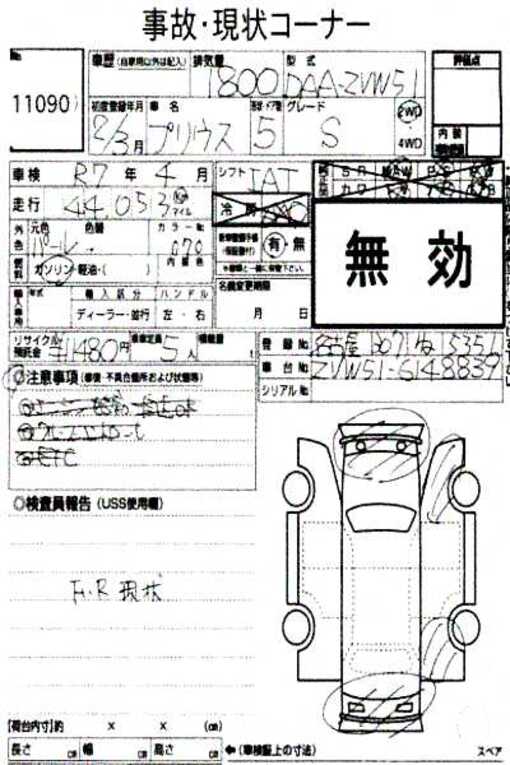 事故・現状コーナー
No.
11090
車歴 (自家用以外は記入)
排気量 1800
型式 DAA-ZVW51
評価点
初度登録年月 2/3月
車名 プリウス
型状・ドア数 5
グレード S
2WD
4WD
内装
車検 R7年4月
シフト IAT
走行 44,053 km マイル
冷房
SR AW PS PW
カワ TV ナビ
外色 元色 パール
色替
カラーNo. 070
内装色
有・無
無効
燃料 ガソリン・軽油・( )
名義変更期限
月 日
輸入車用 年式 輸入区分 ハンドル
ディーラー・並行 左・右
リサイクル預託金 11480円
乗車定員 5人
積載量 t
登録No. 名古屋 307 ね 5351
車台No. ZVW51-6148839
シリアルNo.
◎注意事項 (修復・不具合箇所および状態等)
◎検査員報告 (USS使用欄)
F・R 現状
【荷台内寸】約 x x (cm)
長さ cm 幅 cm 高さ cm
←(車検証上の寸法)
スペア